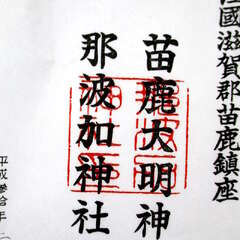 江國滋賀郡苗鹿鎮座
苗鹿大明神
那波加神社
平成參拾年二